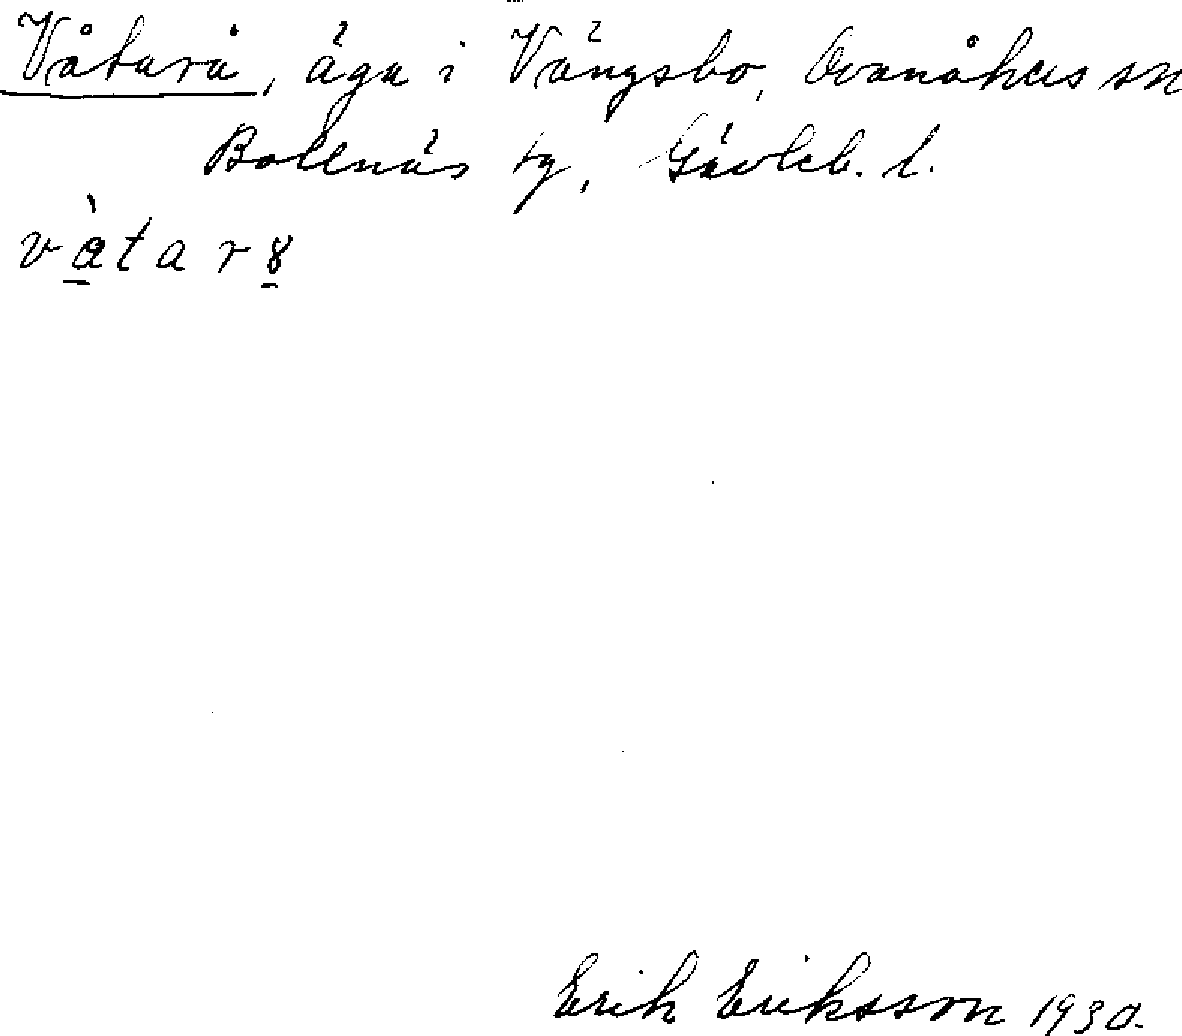 Våtarå, äga i Vängsbo, Ovanåkers sn
Bollnäs tg, Gävleb. l.
Erik Eriksson 1930.